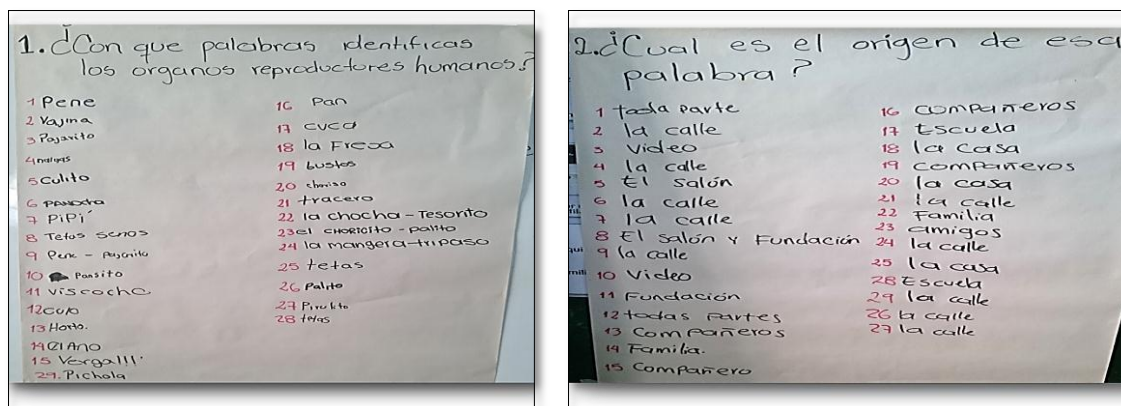 1. ¿Con que palabras identificas
los organos reproductores humanos?
1 Pene
2 Vajina
3 Pajarito
4 nalgas
5 Culito
6 PANOcha
7 PiPi
8 Tetas senos
9 Pene - Pajarito
10 Pansito
11 viscocho
12 culo
13 Horto.
14 El Ano
15 Verga!!!
29. Pichola
16 Pan
17 cuca
18 la Fresa
19 bustos
20 choriso
21 tracero
22 la chocha - Tesorito
23 el CHORICITO - palito
24 la mangera - tripaso
25 tetas
26 Palito
27 Pirulito
28 tetas
2. ¿Cual es el origen de esa
palabra?
1 toda parte
2 la calle
3 Video
4 la calle
5 El salón
6 la calle
7 la calle
8 El salón y Fundación
9 la calle
10 Video
11 Fundación
12 todas partes
13 Compañeros
14 Familia.
15 Compañero
16 compañeros
17 Escuela
18 la casa
19 compañeros
20 la casa
21 la calle
22 Familia
23 amigos
24 la calle
25 la casa
28 Escuela
29 la calle
26 la calle
27 la calle